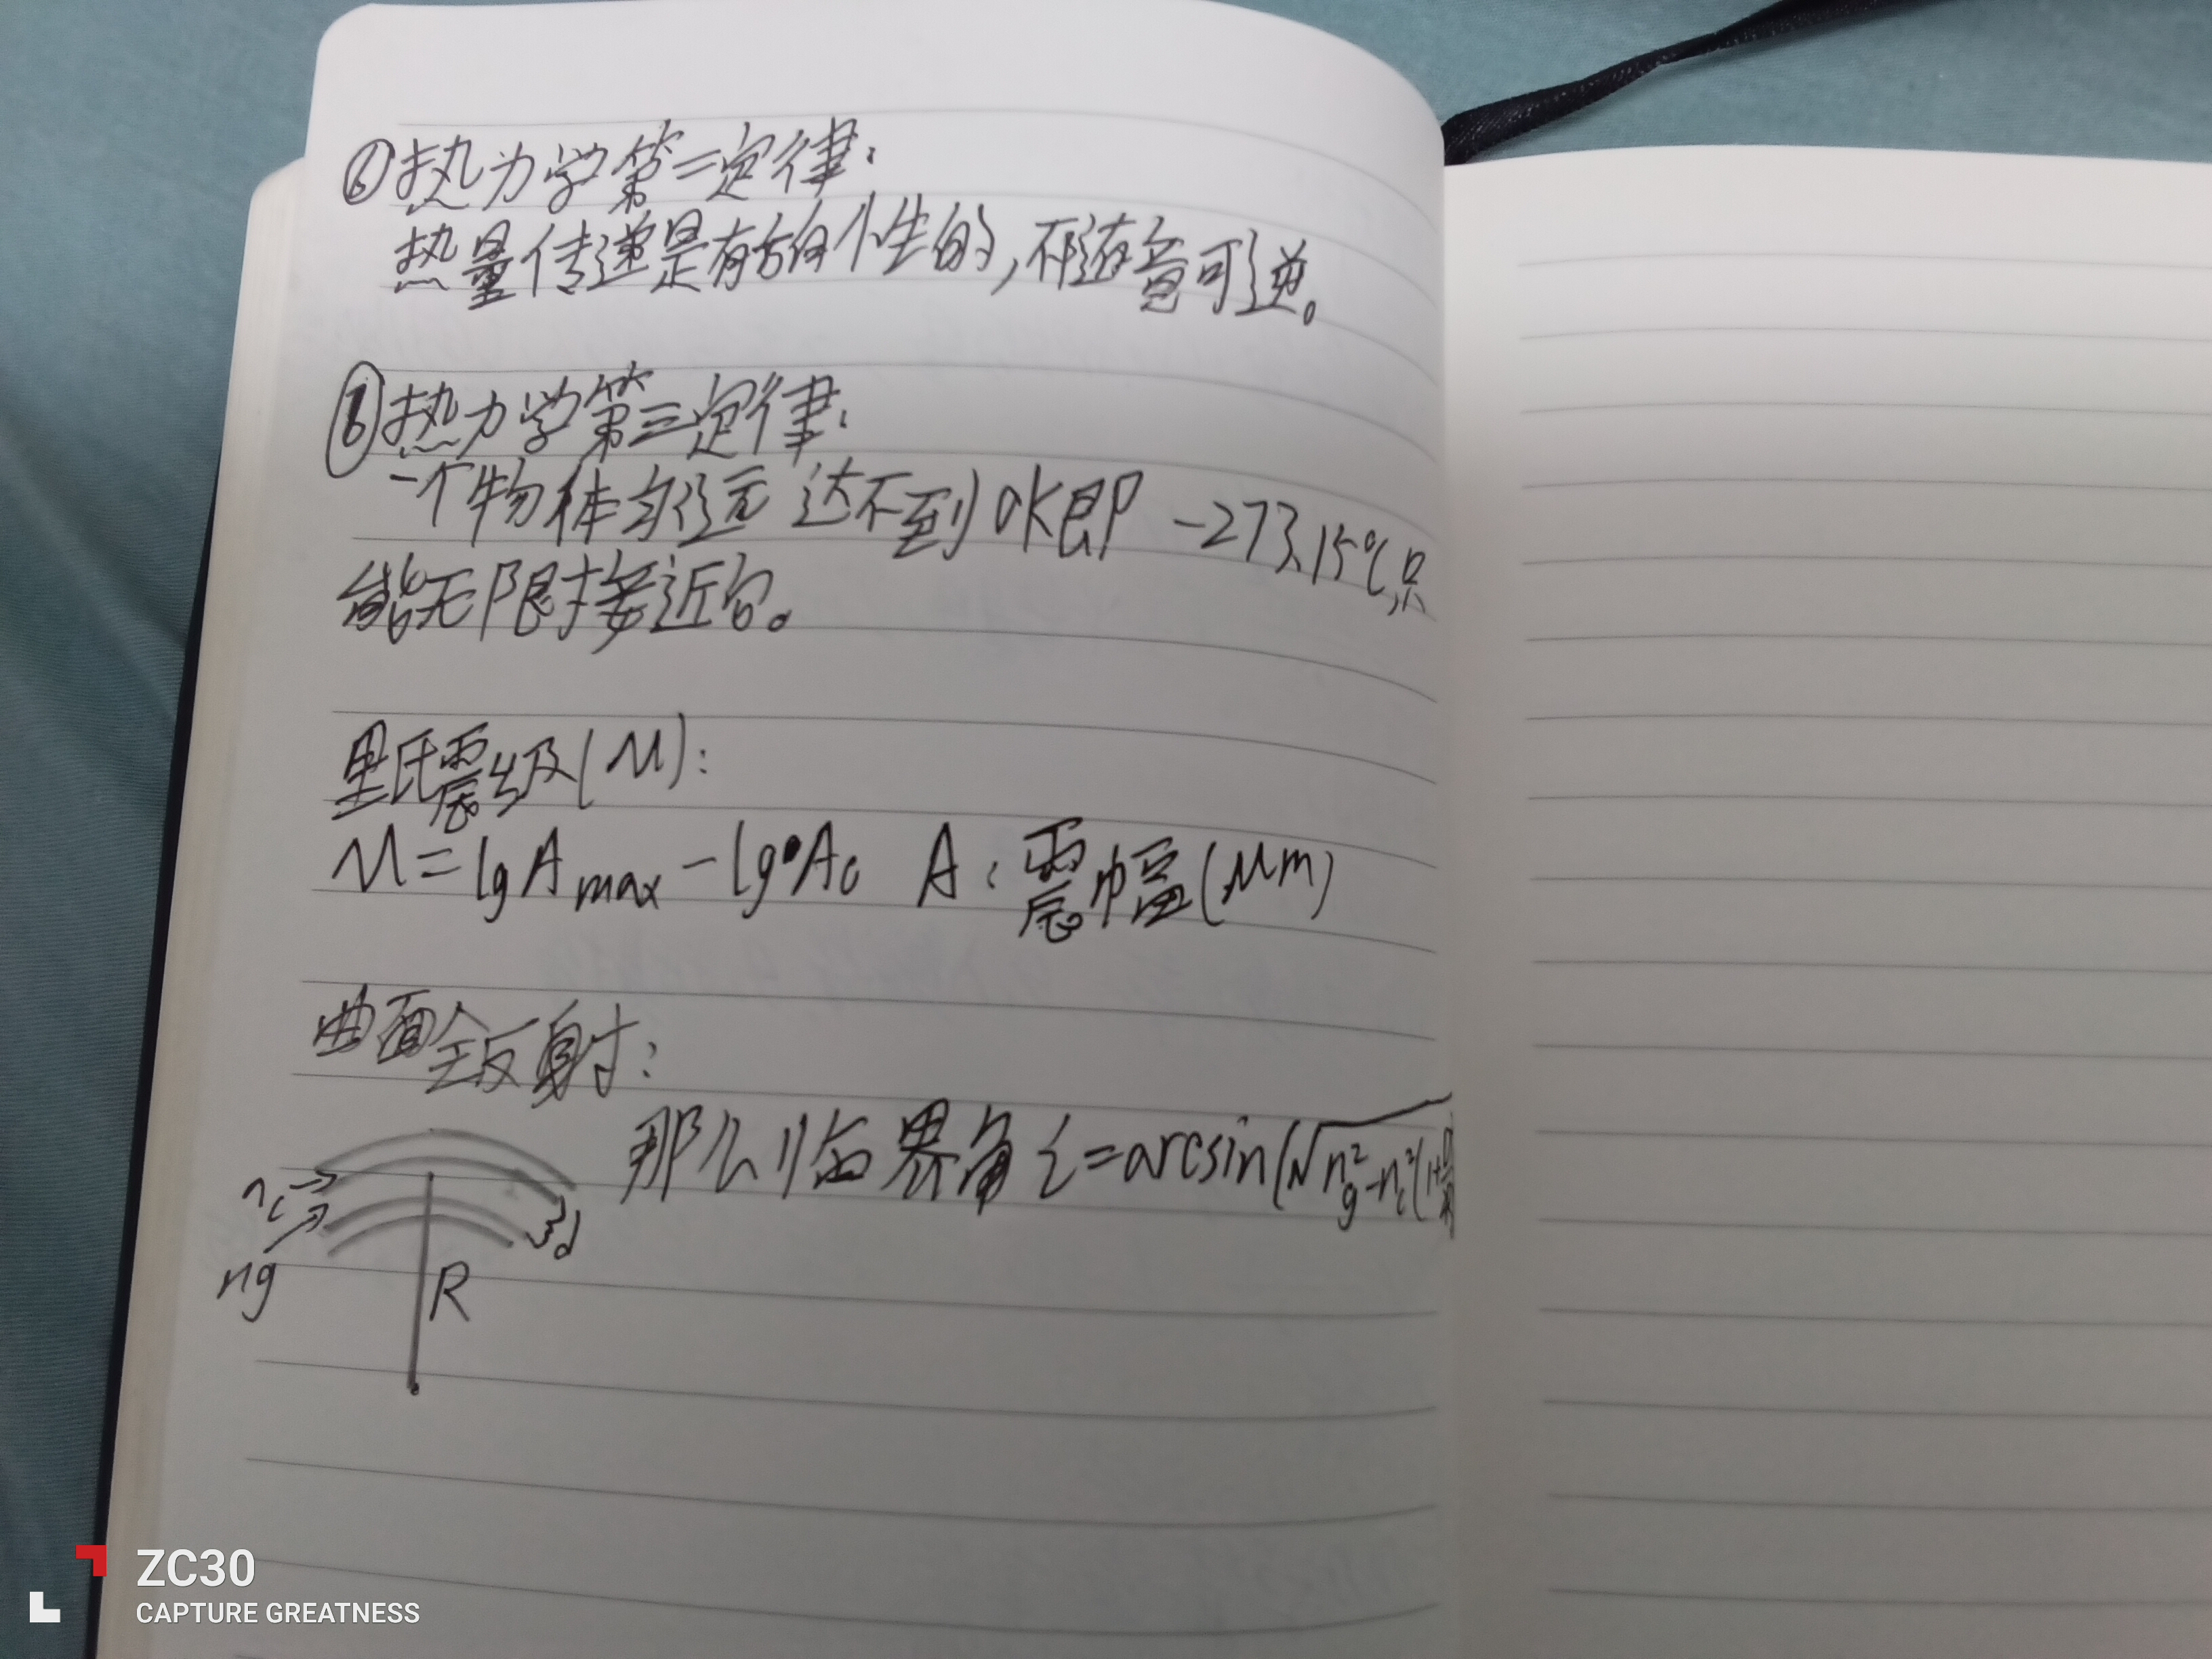 ⑥热力学第二定律:
热量传递是有方向性的,不随意可逆。
⑥热力学第三定律:
一个物体永远达不到0K即 -273.15℃,只
能无限接近它。
里氏震级(M):
M=lgAmax-lgA0 A:震幅(μm)
曲面全反射:
那么临界角i=arcsin(√ng²-nc²(1+
nc
ng
d
R
ZC30
CAPTURE GREATNESS